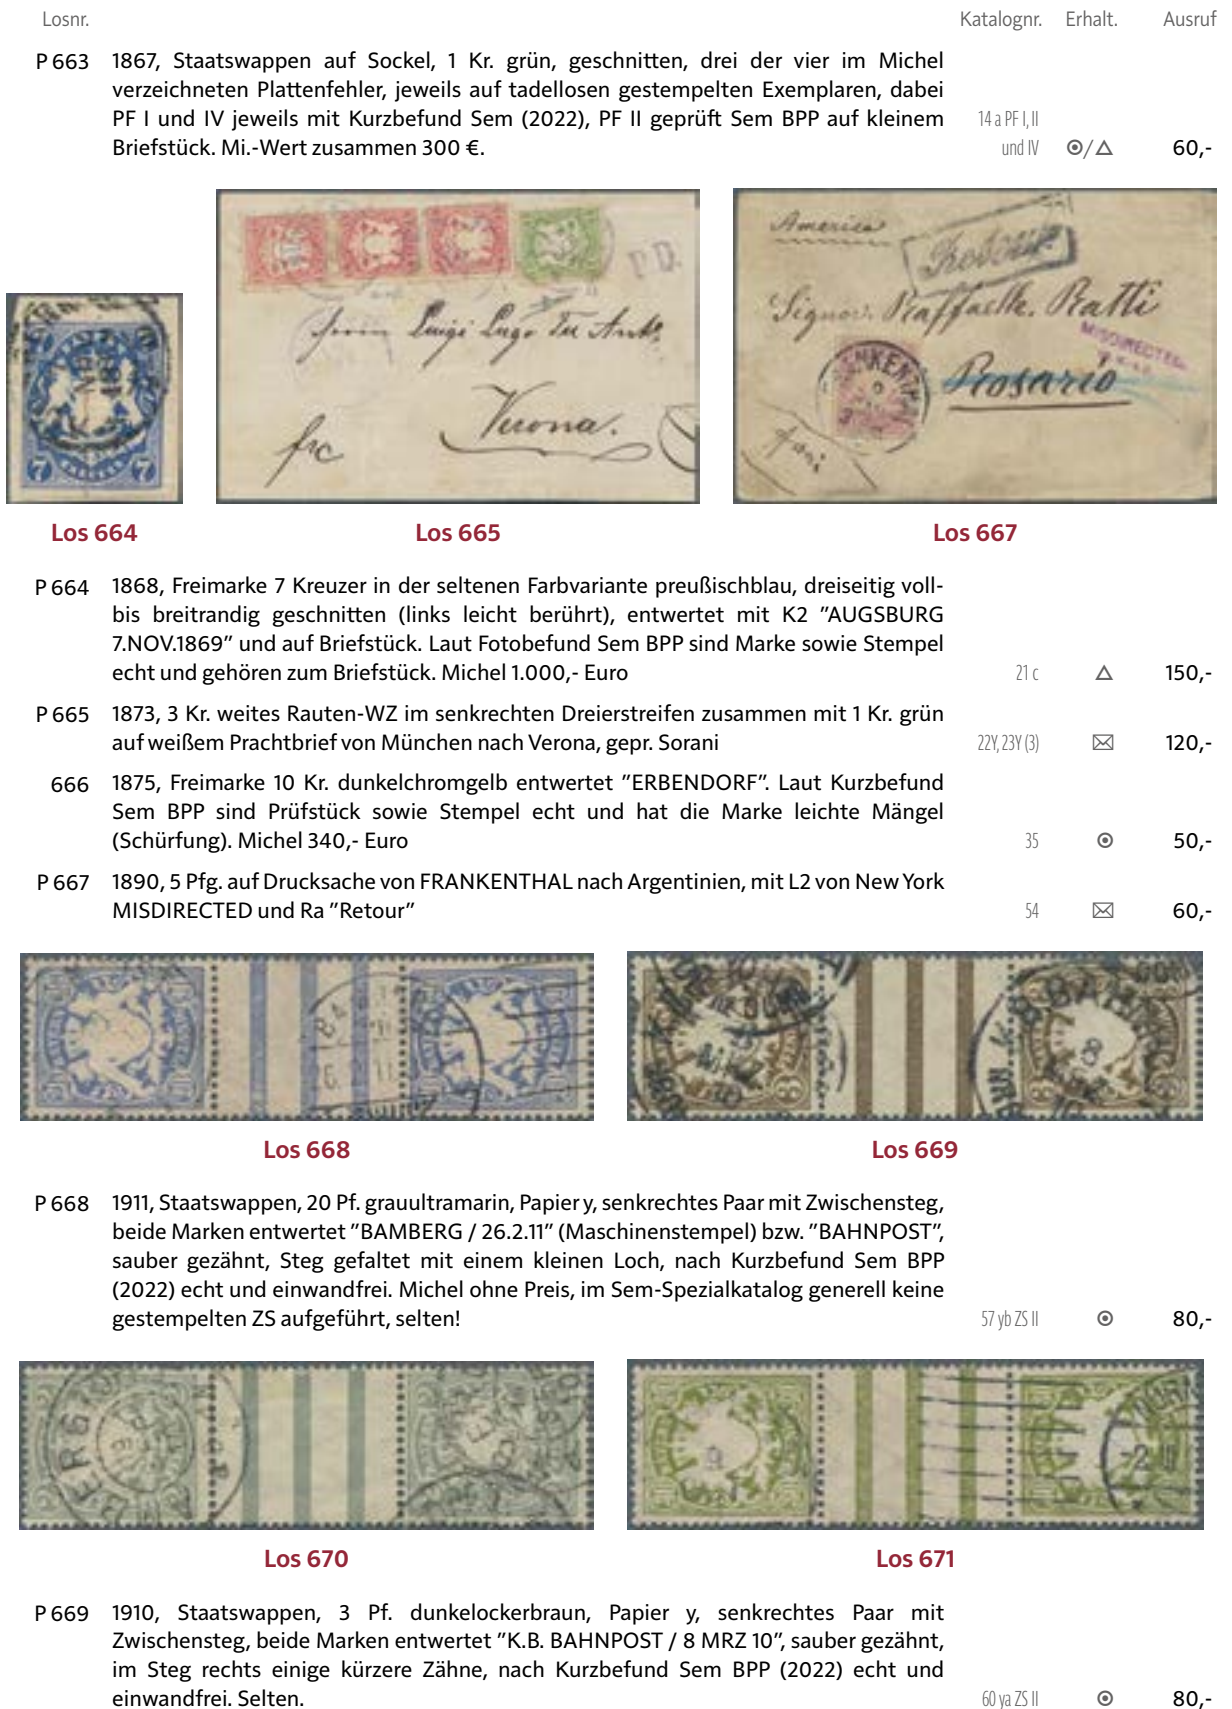 Losnr. Katalognr. Erhalt. Ausruf
P 663 1867, Staatswappen auf Sockel, 1 Kr. grün, geschnitten, drei der vier im Michel
verzeichneten Plattenfehler, jeweils auf tadellosen gestempelten Exemplaren, dabei
PF I und IV jeweils mit Kurzbefund Sem (2022), PF II geprüft Sem BPP auf kleinem 14 a PF I, II
Briefstück. Mi.-Wert zusammen 300 €. und IV ⊙/△ 60,-
America
P.D.
Retour
Signor. Raffaelle. Ratti
MISDIRECTED
Rosario
Verona.
frc
7 7
Los 664 Los 665 Los 667
P 664 1868, Freimarke 7 Kreuzer in der seltenen Farbvariante preußischblau, dreiseitig voll-
bis breitrandig geschnitten (links leicht berührt), entwertet mit K2 "AUGSBURG
7.NOV.1869" und auf Briefstück. Laut Fotobefund Sem BPP sind Marke sowie Stempel
echt und gehören zum Briefstück. Michel 1.000,- Euro 21 c △ 150,-
P 665 1873, 3 Kr. weites Rauten-WZ im senkrechten Dreierstreifen zusammen mit 1 Kr. grün
auf weißem Prachtbrief von München nach Verona, gepr. Sorani 22Y, 23Y (3) ✉ 120,-
666 1875, Freimarke 10 Kr. dunkelchromgelb entwertet "ERBENDORF". Laut Kurzbefund
Sem BPP sind Prüfstück sowie Stempel echt und hat die Marke leichte Mängel
(Schürfung). Michel 340,- Euro 35 ⊙ 50,-
P 667 1890, 5 Pfg. auf Drucksache von FRANKENTHAL nach Argentinien, mit L2 von New York
MISDIRECTED und Ra "Retour" 54 ✉ 60,-
Los 668 Los 669
P 668 1911, Staatswappen, 20 Pf. grauultramarin, Papier y, senkrechtes Paar mit Zwischensteg,
beide Marken entwertet "BAMBERG / 26.2.11" (Maschinenstempel) bzw. "BAHNPOST",
sauber gezähnt, Steg gefaltet mit einem kleinen Loch, nach Kurzbefund Sem BPP
(2022) echt und einwandfrei. Michel ohne Preis, im Sem-Spezialkatalog generell keine
gestempelten ZS aufgeführt, selten! 57 yb ZS II ⊙ 80,-
Los 670 Los 671
P 669 1910, Staatswappen, 3 Pf. dunkelockerbraun, Papier y, senkrechtes Paar mit
Zwischensteg, beide Marken entwertet "K.B. BAHNPOST / 8 MRZ 10", sauber gezähnt,
im Steg rechts einige kürzere Zähne, nach Kurzbefund Sem BPP (2022) echt und
einwandfrei. Selten. 60 ya ZS II ⊙ 80,-